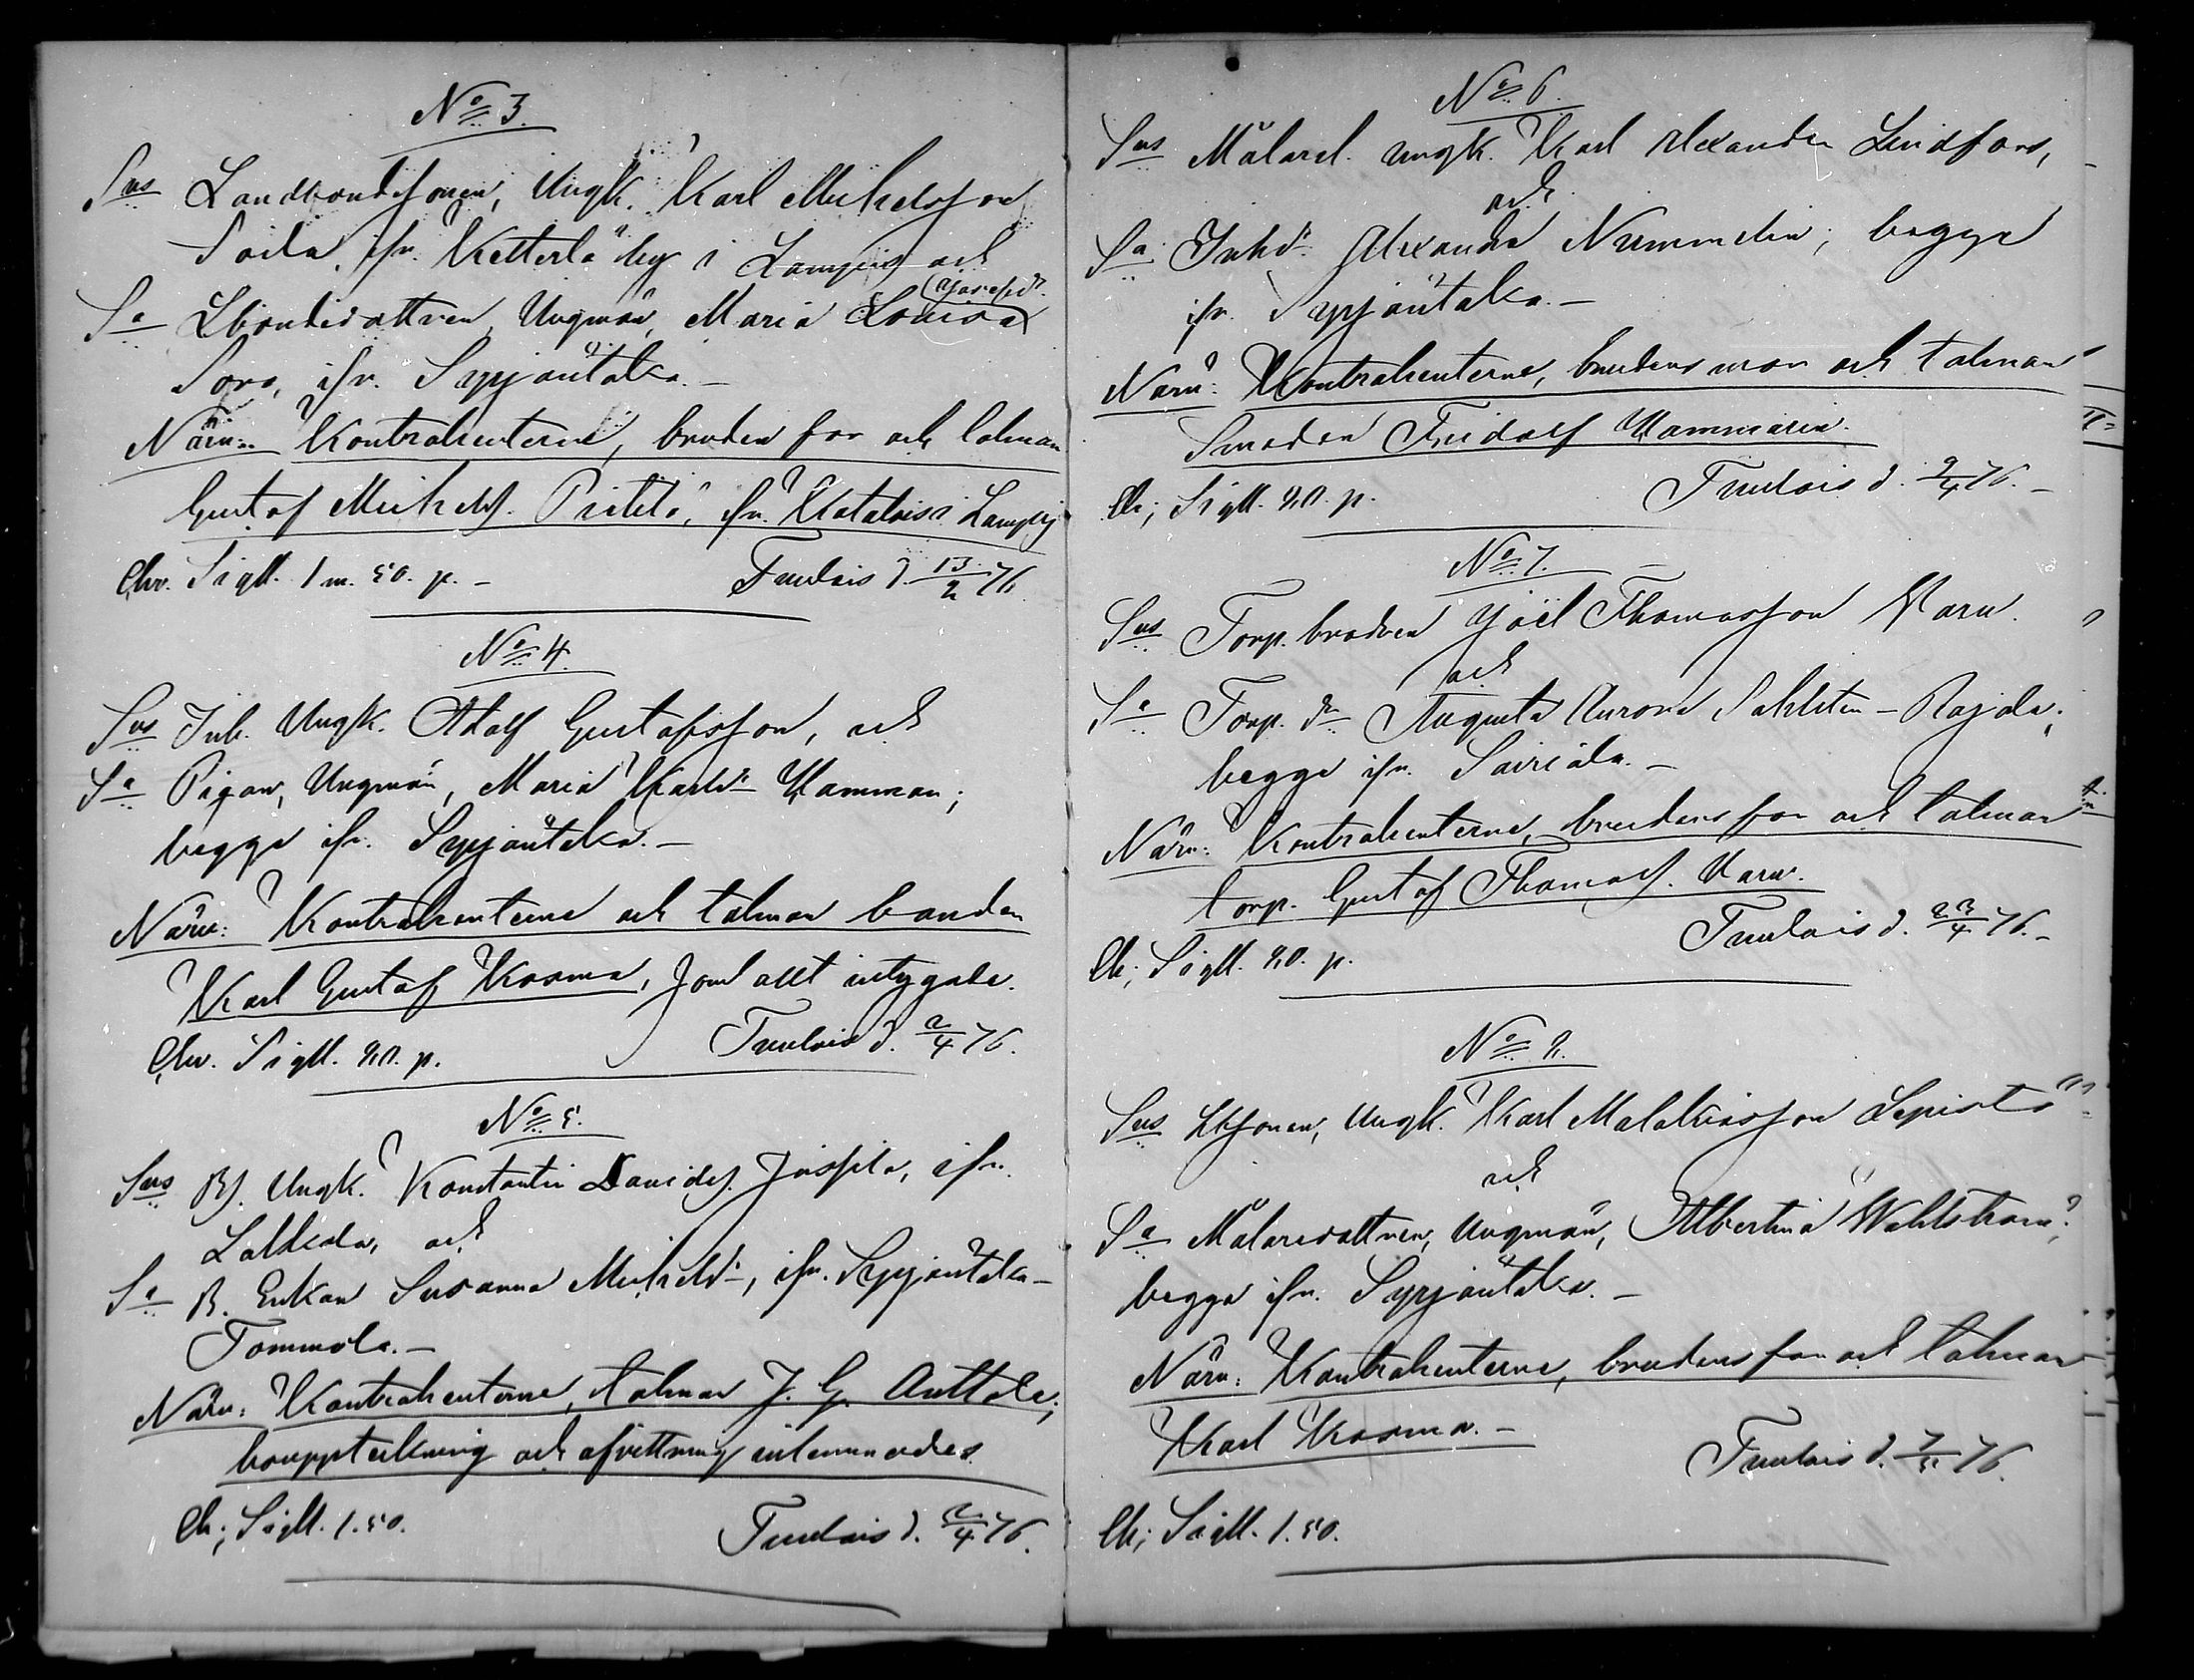 No 3.
Sus Landbondesonen, Ungk. Karl Michelsson
Soila, ifr. Ketterlä by i Lampis och
(Josefsdr.
Sa Lbondedottren, Ungmön, Maria Lovisa
Soro, ifr. Syrjäntaka.–
Närv: Kontrahenterne, bruden far och talman
Gustaf Michelss. Prittilä, ifr. Kataloisi Lampis
Chr. Sigill. 1 m. 50. p.– Tuulois d. 13/2 76
No 4.
Sus Inh. Ungk. Adolf Gustafsson, och
Sa Pigan, Ungmön, Maria Karlsdr. Hamman;
begge ifr. Syrjäntaka.–
Närv: Kontrahenterne och talman bonden
Karl Gustaf Kosma, som allt intygade.
Chr. Sigill. 80. p. Tuulois d. 2/4 76.
No 5.
Sus Bs. Ungk. Konstantin Davids. Jussila, ifr.
Laldeda, och
Sa B. Enkan Susanna Michelsdr., ifr. Syrjäntaka–
Tommola.–
Närv: Kontrahenterne, talman J. G. Anttola;
bouppteckning och afvittring inlemnades.
Ch; Sigill. 1.50. Tuulois d. 2/4 76.
No 6.
Sus Målarel. ungk. Karl Alexander Lindfors,
och
Sa Inhdr. Alexandra Nummelin; begge
ifr. Syrjäntaka.–
Närv: Kontrahenterne, brudens mor och talman
Smeden Fridolf Hammarin.
Ch; Sigill. 80. p. Tuulois d. 9/4 76.–
No 7.
Sus Torp. brodren Joel Thomasson Varu.
och
Sa Torp. dr. Augusta Aurora Sahlsten–Rajala;
begge ifr. Sairiala.–
Närv: Kontrahenterne, brudens far och talman
torp. Gustaf Thomass. Varu.
Ch; Sigill. 80. p. Tuulois d. 23/4 76.–
No 8.
Sus Lbsonen, Ungk. Karl Malakiasson Lepistö
och
Sa Målaredottren, Ungmön, Albertina Wahlström;
begge ifr. Syrjäntaka.–
Närv: Kontrahenterne, brudens far och talman
Karl Kosma.– Tuulois d. 7/5 76.
Ch; Sigill. 1.50.